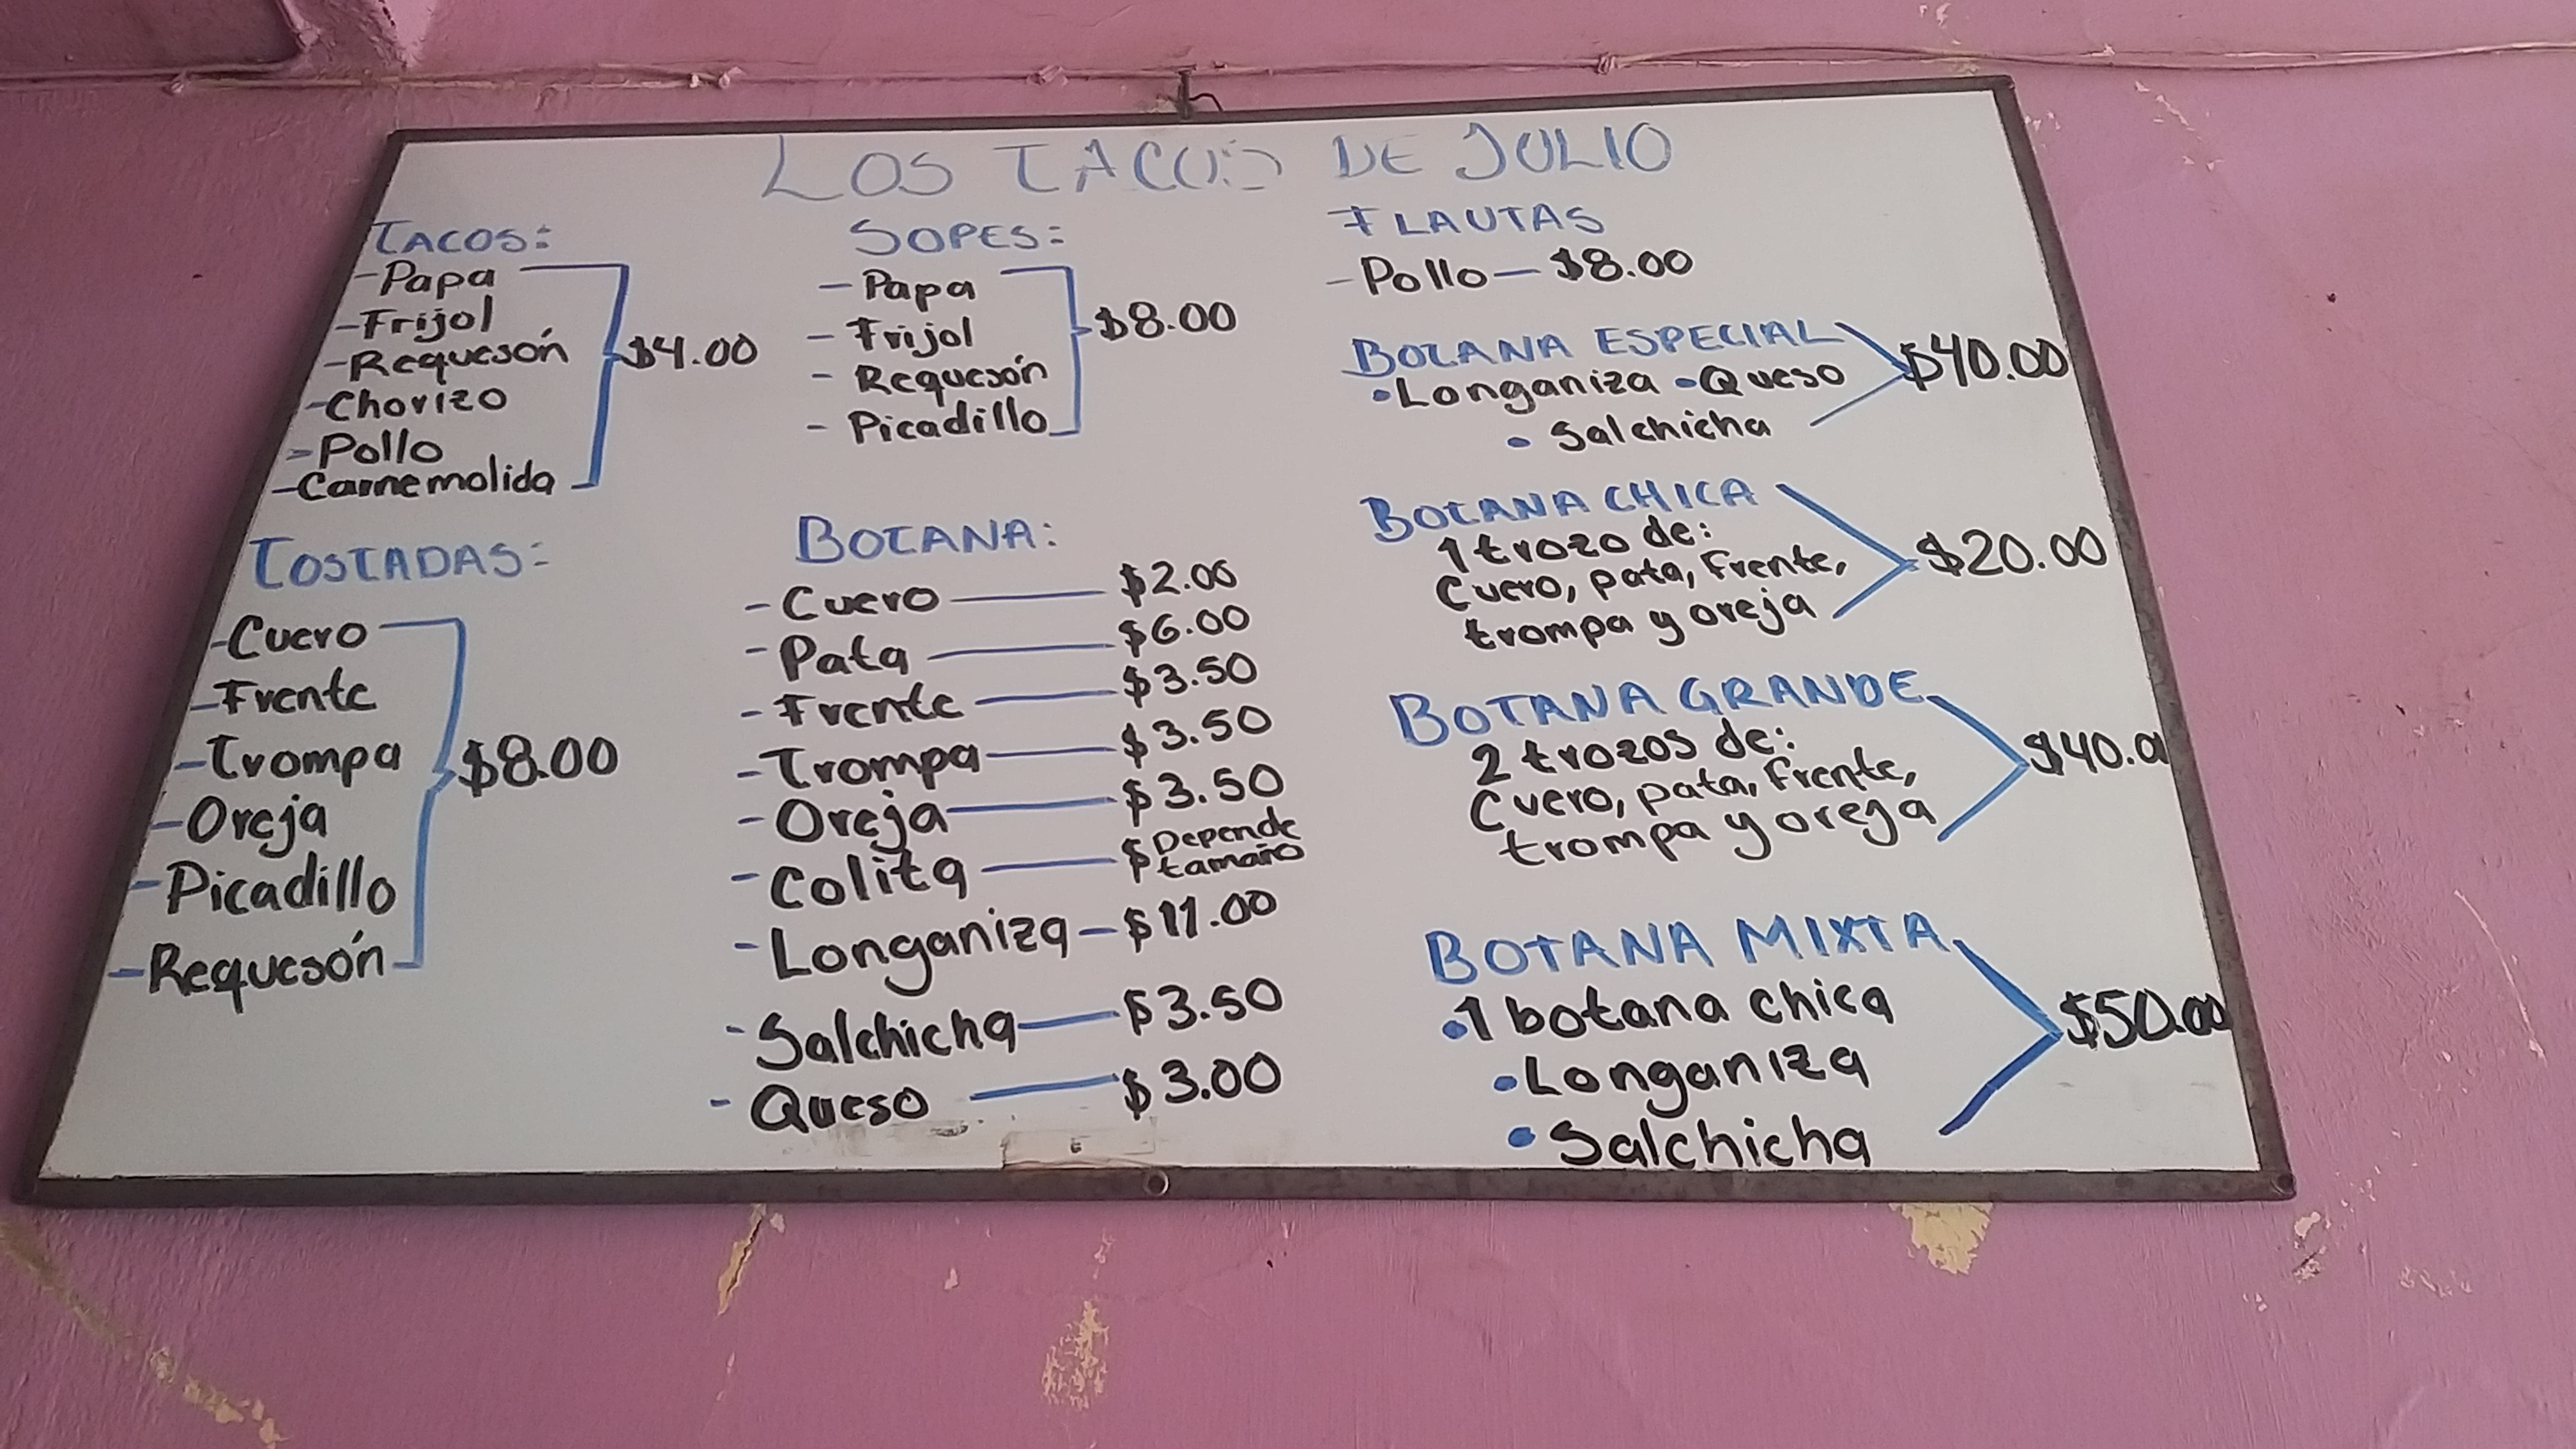 LOS TACOS DE JULIO
TACOS:
-Papa
-Frijol
-Requesón
-Chorizo
-Pollo
-Carne molida
$4.00
TOSTADAS:
-Cuero
-Frente
-Trompa
-Oreja
-Picadillo
-Requesón
$8.00
SOPES:
- Papa
- Frijol
- Requesón
- Picadillo
$8.00
BOTANA:
- Cuero — $2.00
- Pata — $6.00
- Frente — $3.50
- Trompa — $3.50
- Oreja — $3.50
- Colita — $ Depende
tamaño
- Longaniza — $11.00
- Salchicha — $3.50
- Queso — $3.00
FLAUTAS
- Pollo — $8.00
BOTANA ESPECIAL
• Longaniza • Queso
• Salchicha
$40.00
BOTANA CHICA
1 trozo de:
Cuero, pata, Frente,
trompa y oreja
$20.00
BOTANA GRANDE
2 trozos de:
Cuero, pata, Frente,
trompa y oreja
$40.0
BOTANA MIXTA
• 1 botana chica
• Longaniza
• Salchicha
$50.00